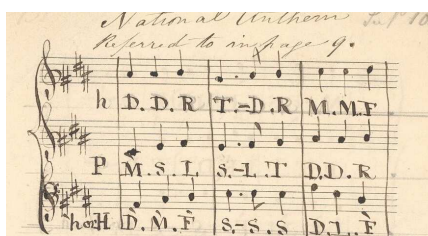 National Anthem
Referred to in page 9.
h D. D. R T.-D. R M. M. F
P M. S. L S.-L. T D. D. R
H D. M. F S.-S. S D. L. F